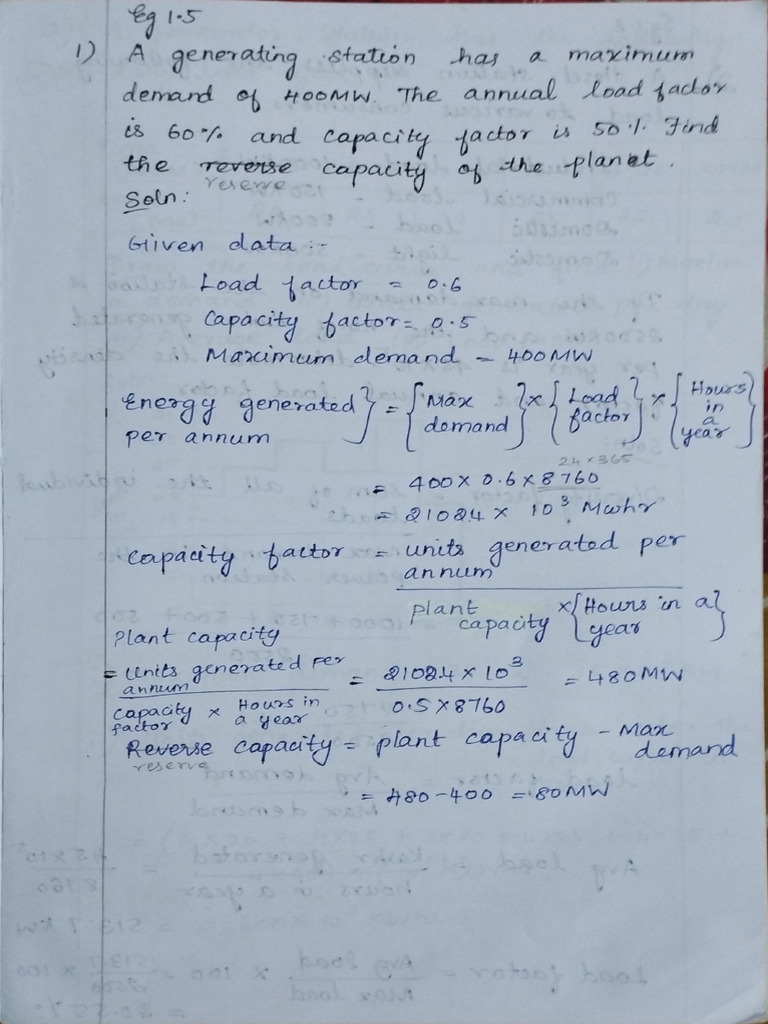 Eg 1.5
1) A generating station has a maximum
demand of 400MW. The annual load factor
is 60% and capacity factor is 50%. Find
the reverse capacity of the planet.
reserve
Soln:
Given data :-
Load factor = 0.6
Capacity factor = 0.5
Maximum demand = 400MW
Energy generated per annum } = { Max demand } × { Load factor } × { Hours in a year }
24 × 365
= 400 × 0.6 × 8760
= 21024 × 10³ Mwhr
Capacity factor = units generated per
annum
plant capacity × { Hours in a year }
Plant capacity
= Units generated per annum / capacity factor × Hours in a year = 21024 × 10³ / 0.5 × 8760 = 480MW
Reverse capacity = plant capacity - Max demand
reserve
= 480-400 = 80MW